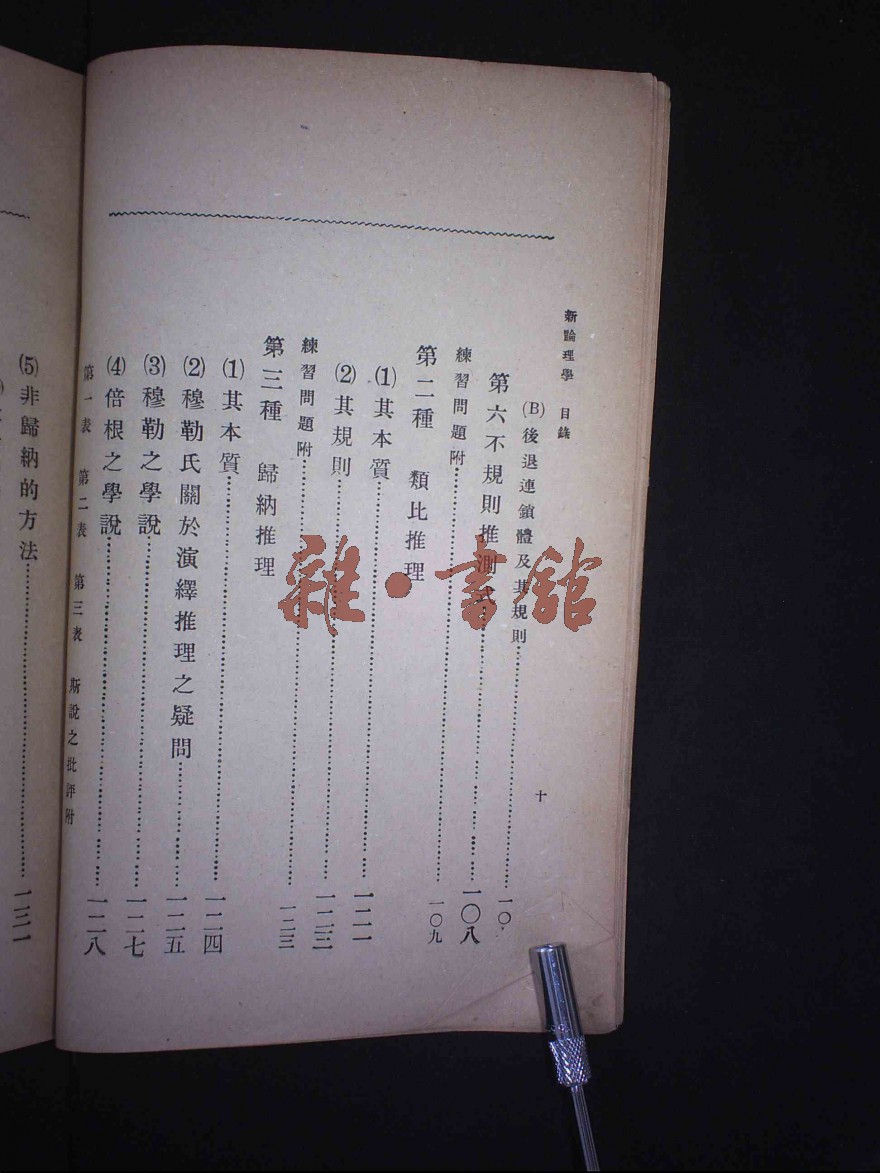 新論理學 目錄 十
(B)後退連鎖體及其規則……一〇
第六不規則推測式……一〇八
練習問題附……一〇九
第二種 類比推理
(1)其本質……一二一
(2)其規則……一二二
練習問題附……一二三
第三種 歸納推理
(1)其本質……一二四
(2)穆勒氏關於演繹推理之疑問……一二五
(3)穆勒之學說……一二七
(4)倍根之學說……一二八
第一表 第二表 第三表 斯說之批評附
(5)非歸納的方法……一三一
雜·書館